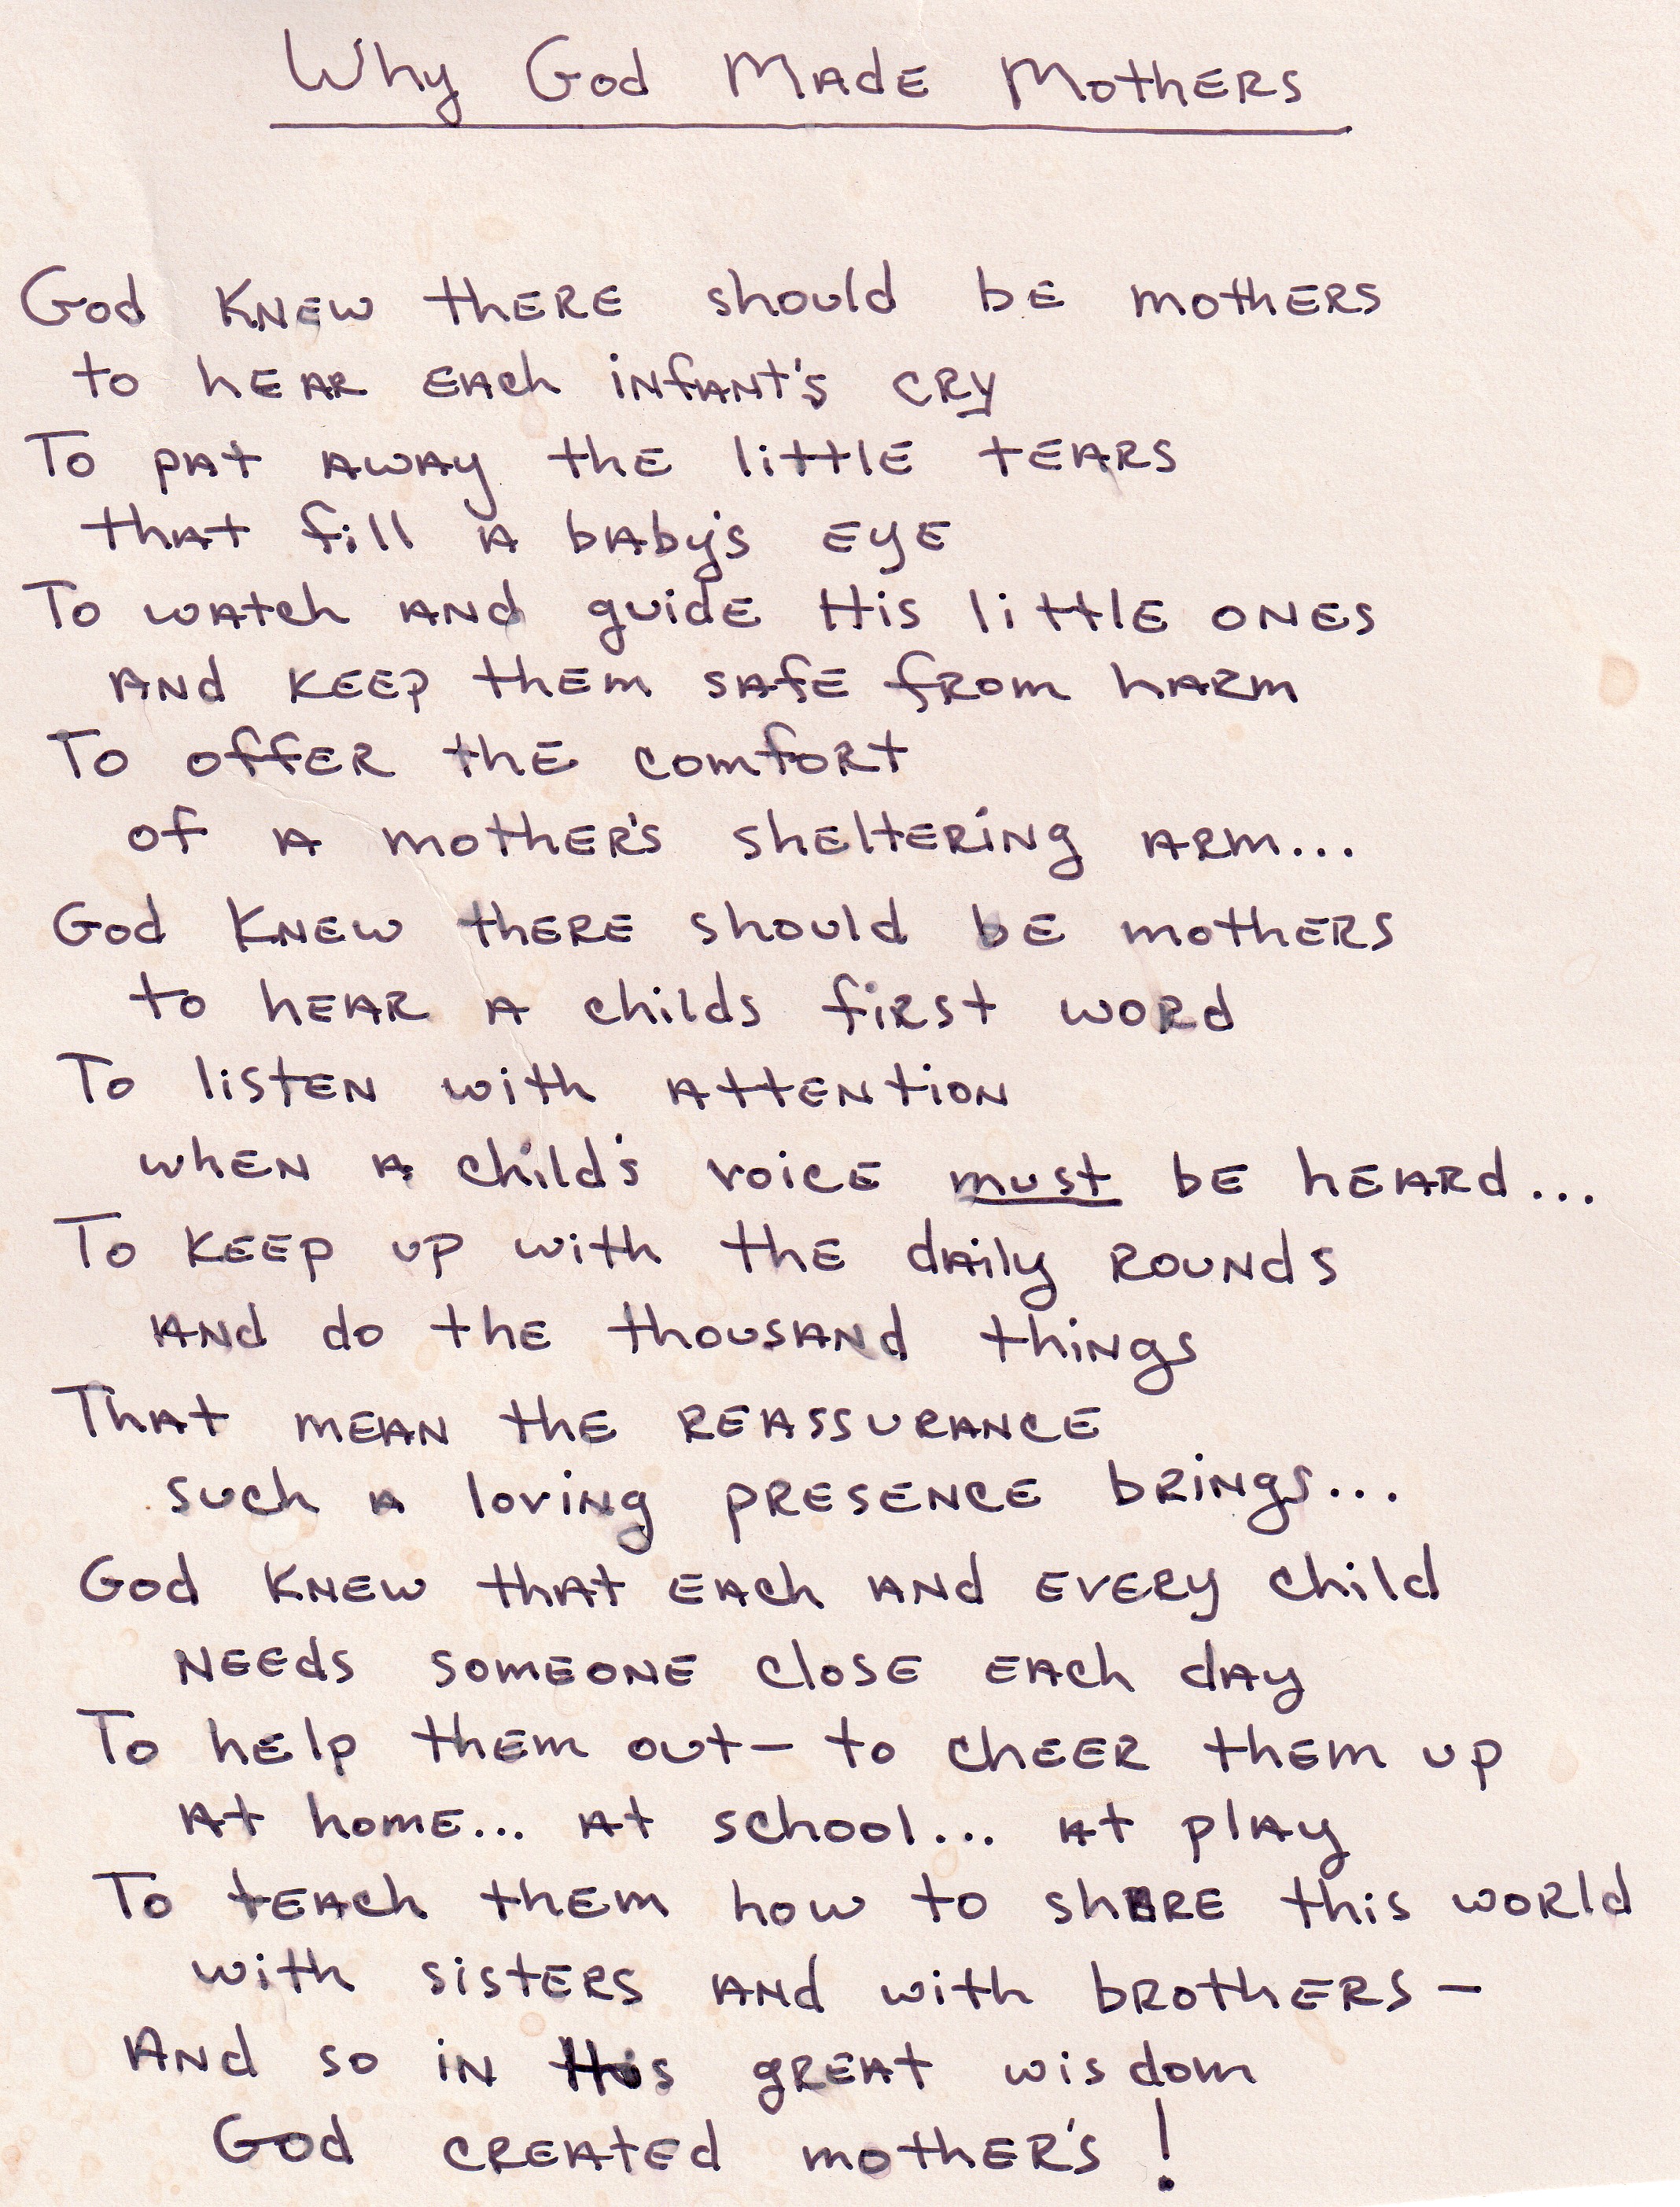 Why God Made Mothers
God knew there should be mothers
to hear each infant's cry
To pat away the little tears
that fill a baby's eye
To watch and guide His little ones
and keep them safe from harm
To offer the comfort
of a mother's sheltering arm...
God knew there should be mothers
to hear a childs first word
To listen with attention
when a child's voice must be heard...
To keep up with the daily rounds
and do the thousand things
That mean the reassurance
such a loving presence brings...
God knew that each and every child
needs someone close each day
To help them out — to cheer them up
at home... at school... at play
To teach them how to share this world
with sisters and with brothers —
And so in His great wisdom
God created mother's!